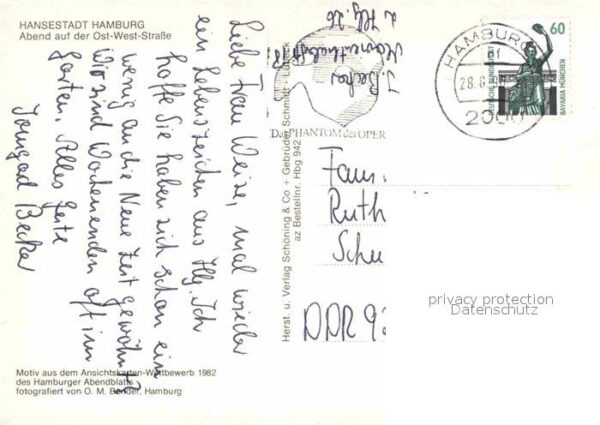 HANSESTADT HAMBURG
Abend auf der Ost-West-Straße
Liebe Frau Weize, mal wieder
ein Lebenszeichen aus Hbg. Ich
hoffe Sie haben sich schon ein
wenig an die Neue Zeit gewöhnt?
Wir sind Wochenenden oft im
Garten. Alles Gute
Irmgard Becker
Motiv aus dem Ansichtskarten-Wettbewerb 1982
des Hamburger Abendblatts
fotografiert von O. M. Bander, Hamburg
Herst. u. Verlag Schöning & Co + Gebrüder Schmidt - Lübeck
az Bestellnr. Hbg 942
I. Becker
2 Hbg. 26
Das PHANTOM der OPER
HAMBURG
28.6
2000
60
DEUTSCHE BUNDESPOST
BAVARIA MÜNCHEN
Fam.
Ruth
Schu
DDR 93
privacy protection
Datenschutz